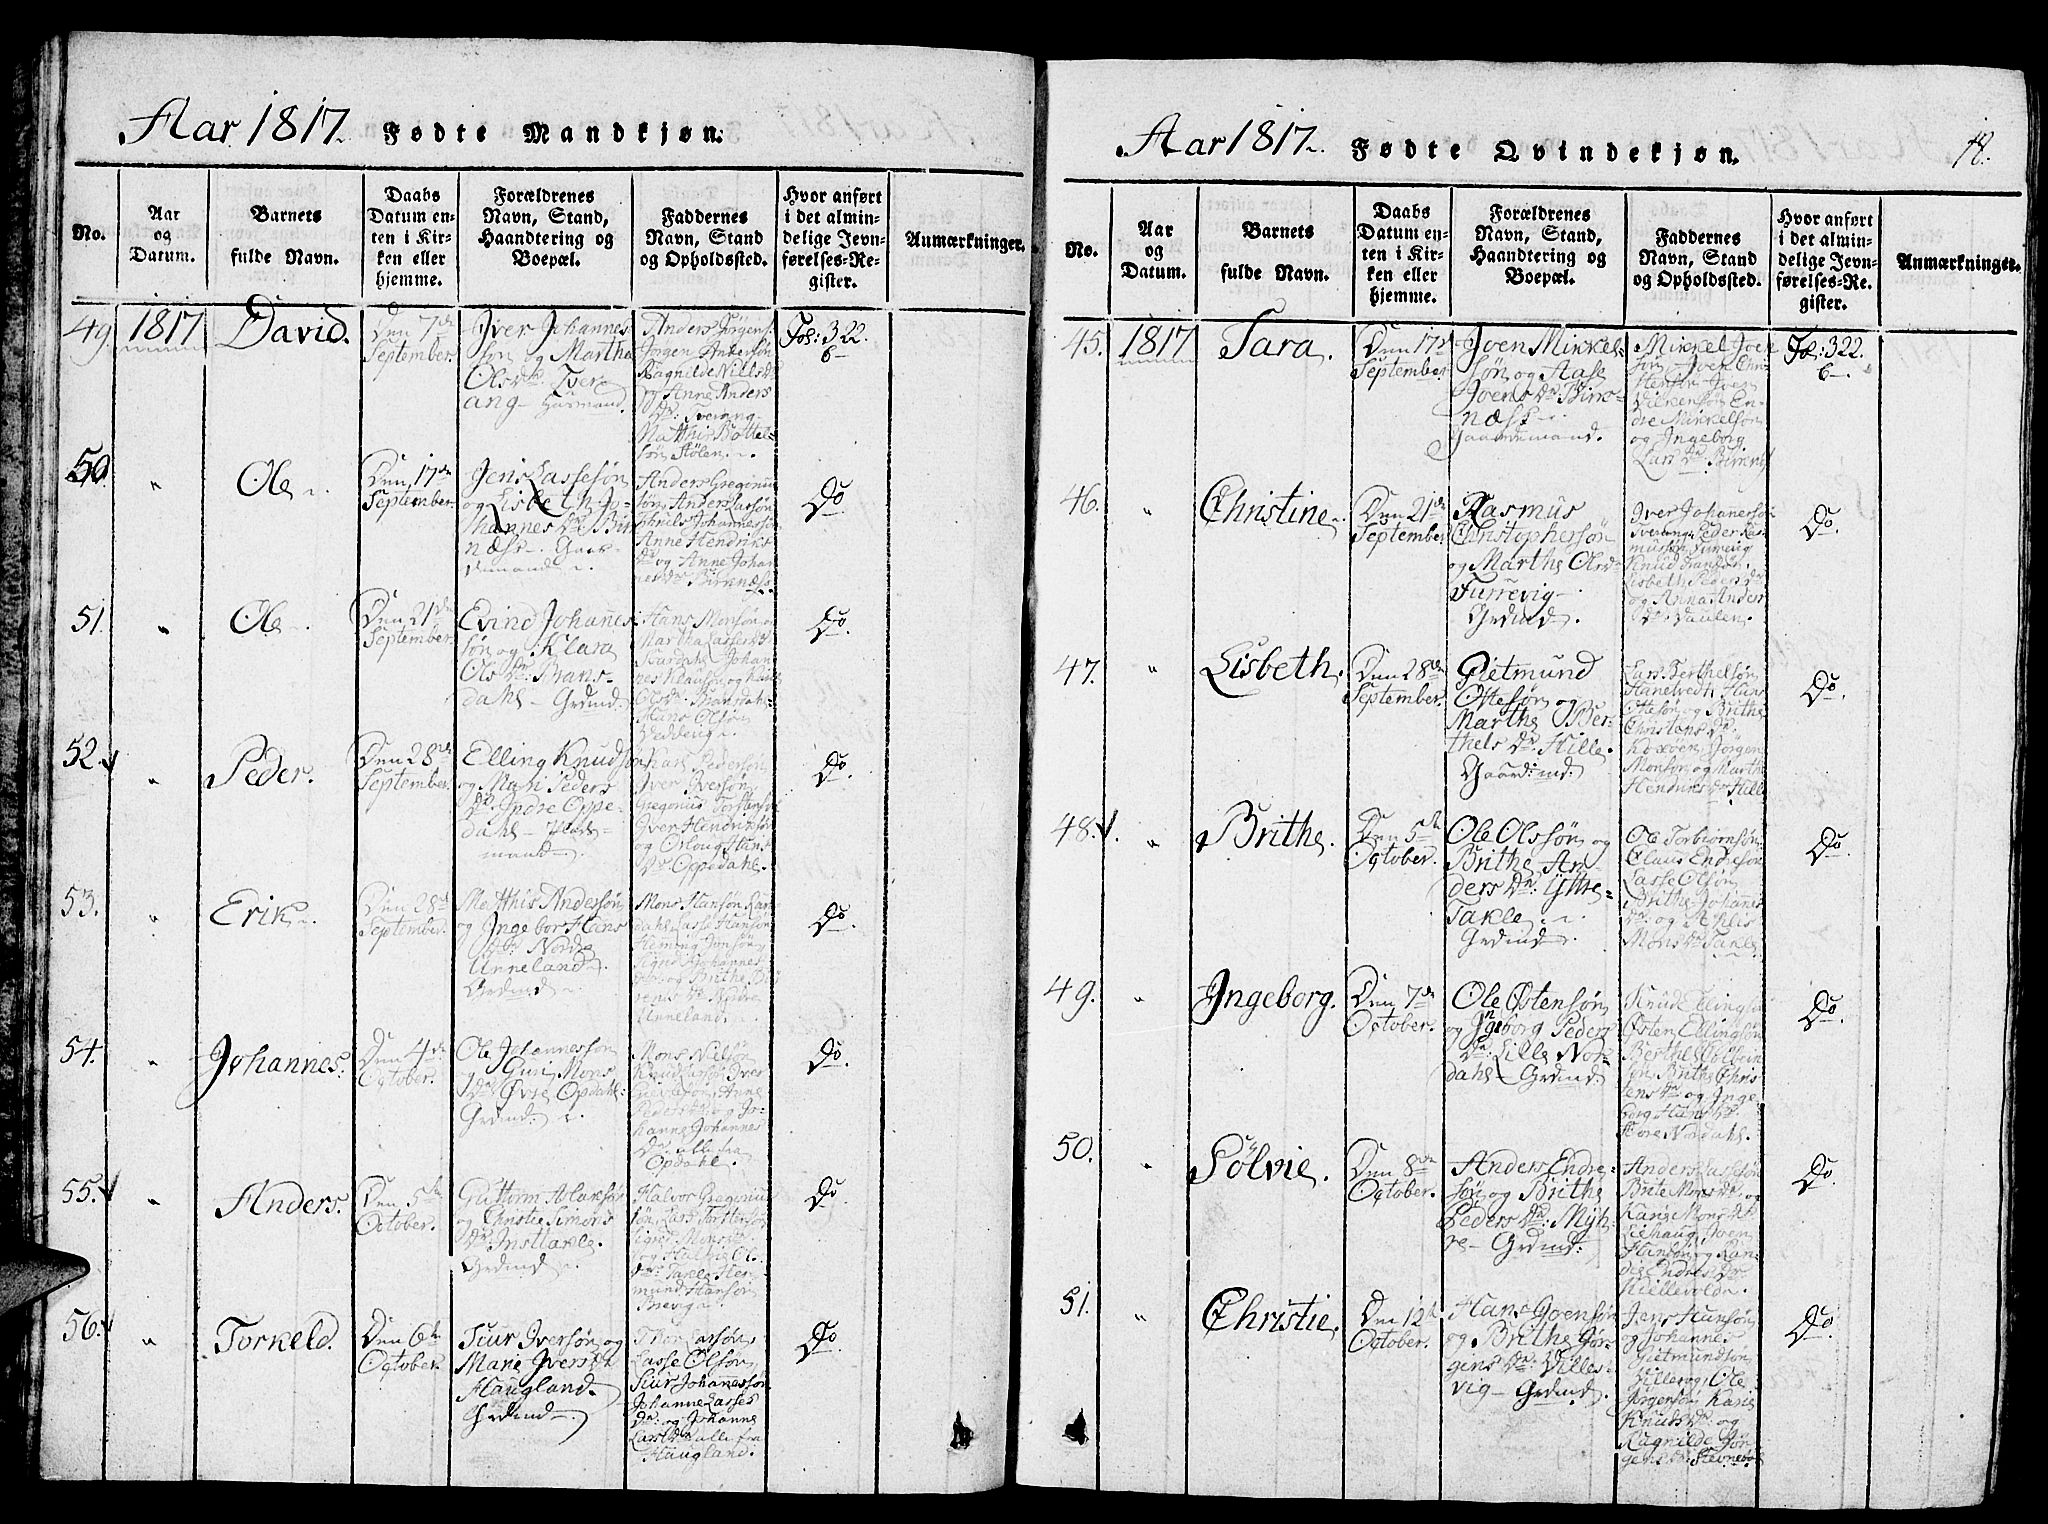 Aar 1817. Fødte Mandkjøn.
No.
Aar
og
Datum.
Barnets
fulde Navn.
Daabs
Datum en-
ten i Kir-
ken eller
hjemme.
Forældrenes
Navn, Stand,
Haandtering og
Boepæl.
Faddernes
Navn, Stand
og Opholdssted.
Hvor anført
i det almin-
delige Jevn-
førelses-Re-
gister.
Anmærkninger.
49.
1817
David.
Den 7de
September.
Iver Johannes
søn og Martha
Olsdr. Tver
ang - Huusmand.
Anders Jørgens.
Jørgen Andersøn
Ragnilde Nillsdr
og Anne Anders
Dr. Tverang
Matthis Bottel-
søn Stølen
Fol: 322.
6
50.
"
Ole
Den 17de
September.
Jens Lassesøn
og Lisbeth Jo-
hannes Dr Bir
næss - Gaar-
demand
Anders Gregorius
søn, Anders Lassøn
Johannessøn
Anne Hendriks
Dr og Anne Johan
nes Dr Birknæss
Do
51.
"
Ole
Den 21de
September.
Evind Johannes
søn og Klara
Ols Dr. Brans-
dahl - Grdmd.
Hans Monsøn og
Martha Lasses Dr
Johan-
nes Klausøn og
Olsdr. Bransdahl
Hans Olsøn
Do
52.
"
Peder.
Den 28de
September.
Elling Knudsøn
og Mari Peders
Dr. Indre Oppe-
dahl - Plads-
mand
Lars Pedersøn
Iver Iversøn
Gregorius Torstensøn
Iver Hendriksøn
og Orloug Hans
Dr. Oppedahl
Do
53.
"
Erik
Den 28de
September.
Matthis Andersøn
og Ingebor Hans
Dr. Nordre
Unneland
Grdmd
Mons Hansøn
dahl Lasse Hansøn
Jonsøn
Sigrid Johannes
Dr. og Brithe
Dr. Nordre
Unneland
Do
54.
"
Johannes.
Den 4de
October.
Ole Johannessøn
og Guri Mons
Dr. Øvre Opdahl
Grdmd.
Mons Nielsøn
Knud Larss. Iver
Anne
Peders Dr og Jo-
hanne Johannes
Dr. alle fra
Opdahl.
Do
55.
"
Anders.
Den 5te
October.
Guttorm Aslaksøn
og Christie Simons
Dr. Insttakle.
Grdmd
Halvor Gregorius
søn, Lars Tostensøn
Sigrid Monsdr
og Ol
Dr. Takle Her-
mund Hansøn
Brevig
Do
56.
"
Torkeld.
Den 6te
October.
Siur Iversøn og
Marie Ivers Dr
Haugland.
Grdmd
Thor Larsøn,
Lasse Olsøn,
Siur Johanessøn
Johanne Lasses
Dr. og Johanne
Lars Dr alle fra
Haugland.
Do
Aar 1817. Fødte Qvindekjøn.
18.
No.
Aar
og
Datum.
Barnets
fulde Navn.
Daabs
Datum en-
ten i Kir-
ken eller
hjemme.
Forældrenes
Navn, Stand,
Haandtering og
Boepæl.
Faddernes
Navn, Stand
og Opholdssted.
Hvor anført
i det almin-
delige Jevn-
førelses-Re-
gister.
Anmærkninger.
45.
1817
Tara.
Den 17de
September
Joen Mikkel-
søn og Aase
Joens Dr. Birk-
næss
Gaardemand.
Mikkel Joen
søn Joen Chri-
stensøn Joen
Villumsøn En-
dre Mikkelsøn
og Ingeborg
Lars Dr. Birknes
Fol: 322.
6
46.
"
Christine
Den 21de
September
Rasmus
Christophersøn
og Marthe Olsdr
Furrevig
Grdmd.
Iver Johanessøn
Tverang, Peder Ras-
musøn Furrevig
Knud Hansøn,
Lisbeth Peders Dr
og Anna Anders
Dr. Vaulen.
Do
47.
"
Lisbeth.
Den 28de
September.
Gietmund
Ottesøn og
Marthe Ber-
thels Dr. Hille.
Gaardmd.
Lars Berthelsøn
Hanetvedt Hans
Ottesøn og Brithe
Christans Dr.
Jørgen
Monsøn og Marthe
Hendriks Dr Hille
Do
48.
"
Brithe.
Den 5te
October.
Ole Olssøn og
Brithe An-
ders Dr. Yttre-
Takle
Grdmd
Ole Torbiørnsøn
Claus Endresøn
Lasse Olsøn
Brithe Johanes
Dr. og Ahlis
Mons Dr Takle
Do
49.
"
Ingeborg.
Den 7de
October.
Ole Østensøn
og Ingeborg Peders
Dr. Lille Nor-
dahl - Grdmd
Knud Ellingsøn
Østen Ellingsøn
Berthel Colbein
søn Brithe Chris
tens Dr og Inge-
borg Hans Dr.
Store Nordahl.
Do
50.
"
Sølvie.
Den 8de
October.
Anders Endre-
søn og Brithe
Peders Dr. Myh-
re - Grdmd.
Anders Lassesøn
Brite Mons Dr. og
Karie Mons Dr
Leehaug, Joen
Hansøn og Ran-
die Endres Dr
Kiellevolden.
Do
51.
"
Christie.
Den 12te
October.
Hans Joensøn
og Brithe Jør-
gens Dr. Villes-
vig - Grdmd.
Jens Hansøn,
og Johannes
Gietmundsøn
Ole
Jørgensøn, Karie
Knuds Dr. og
Ragnilde Jør-
gens Dr. Stevnebøe
Do